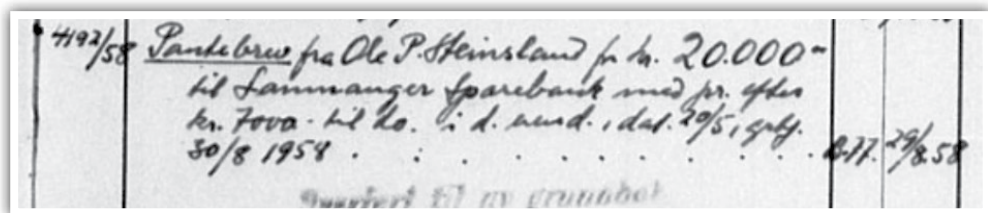 4192/58 Pantebrev fra Ole P. Steinsland for kr. 20.000-
til Samnanger Sparebank med pr. efter
kr. 7000- til do. i d. eiend., dat. 20/5, gbf.
30/8 1958 . . . . . . . . . . B.77. 29/8.58
til ny grunnbok